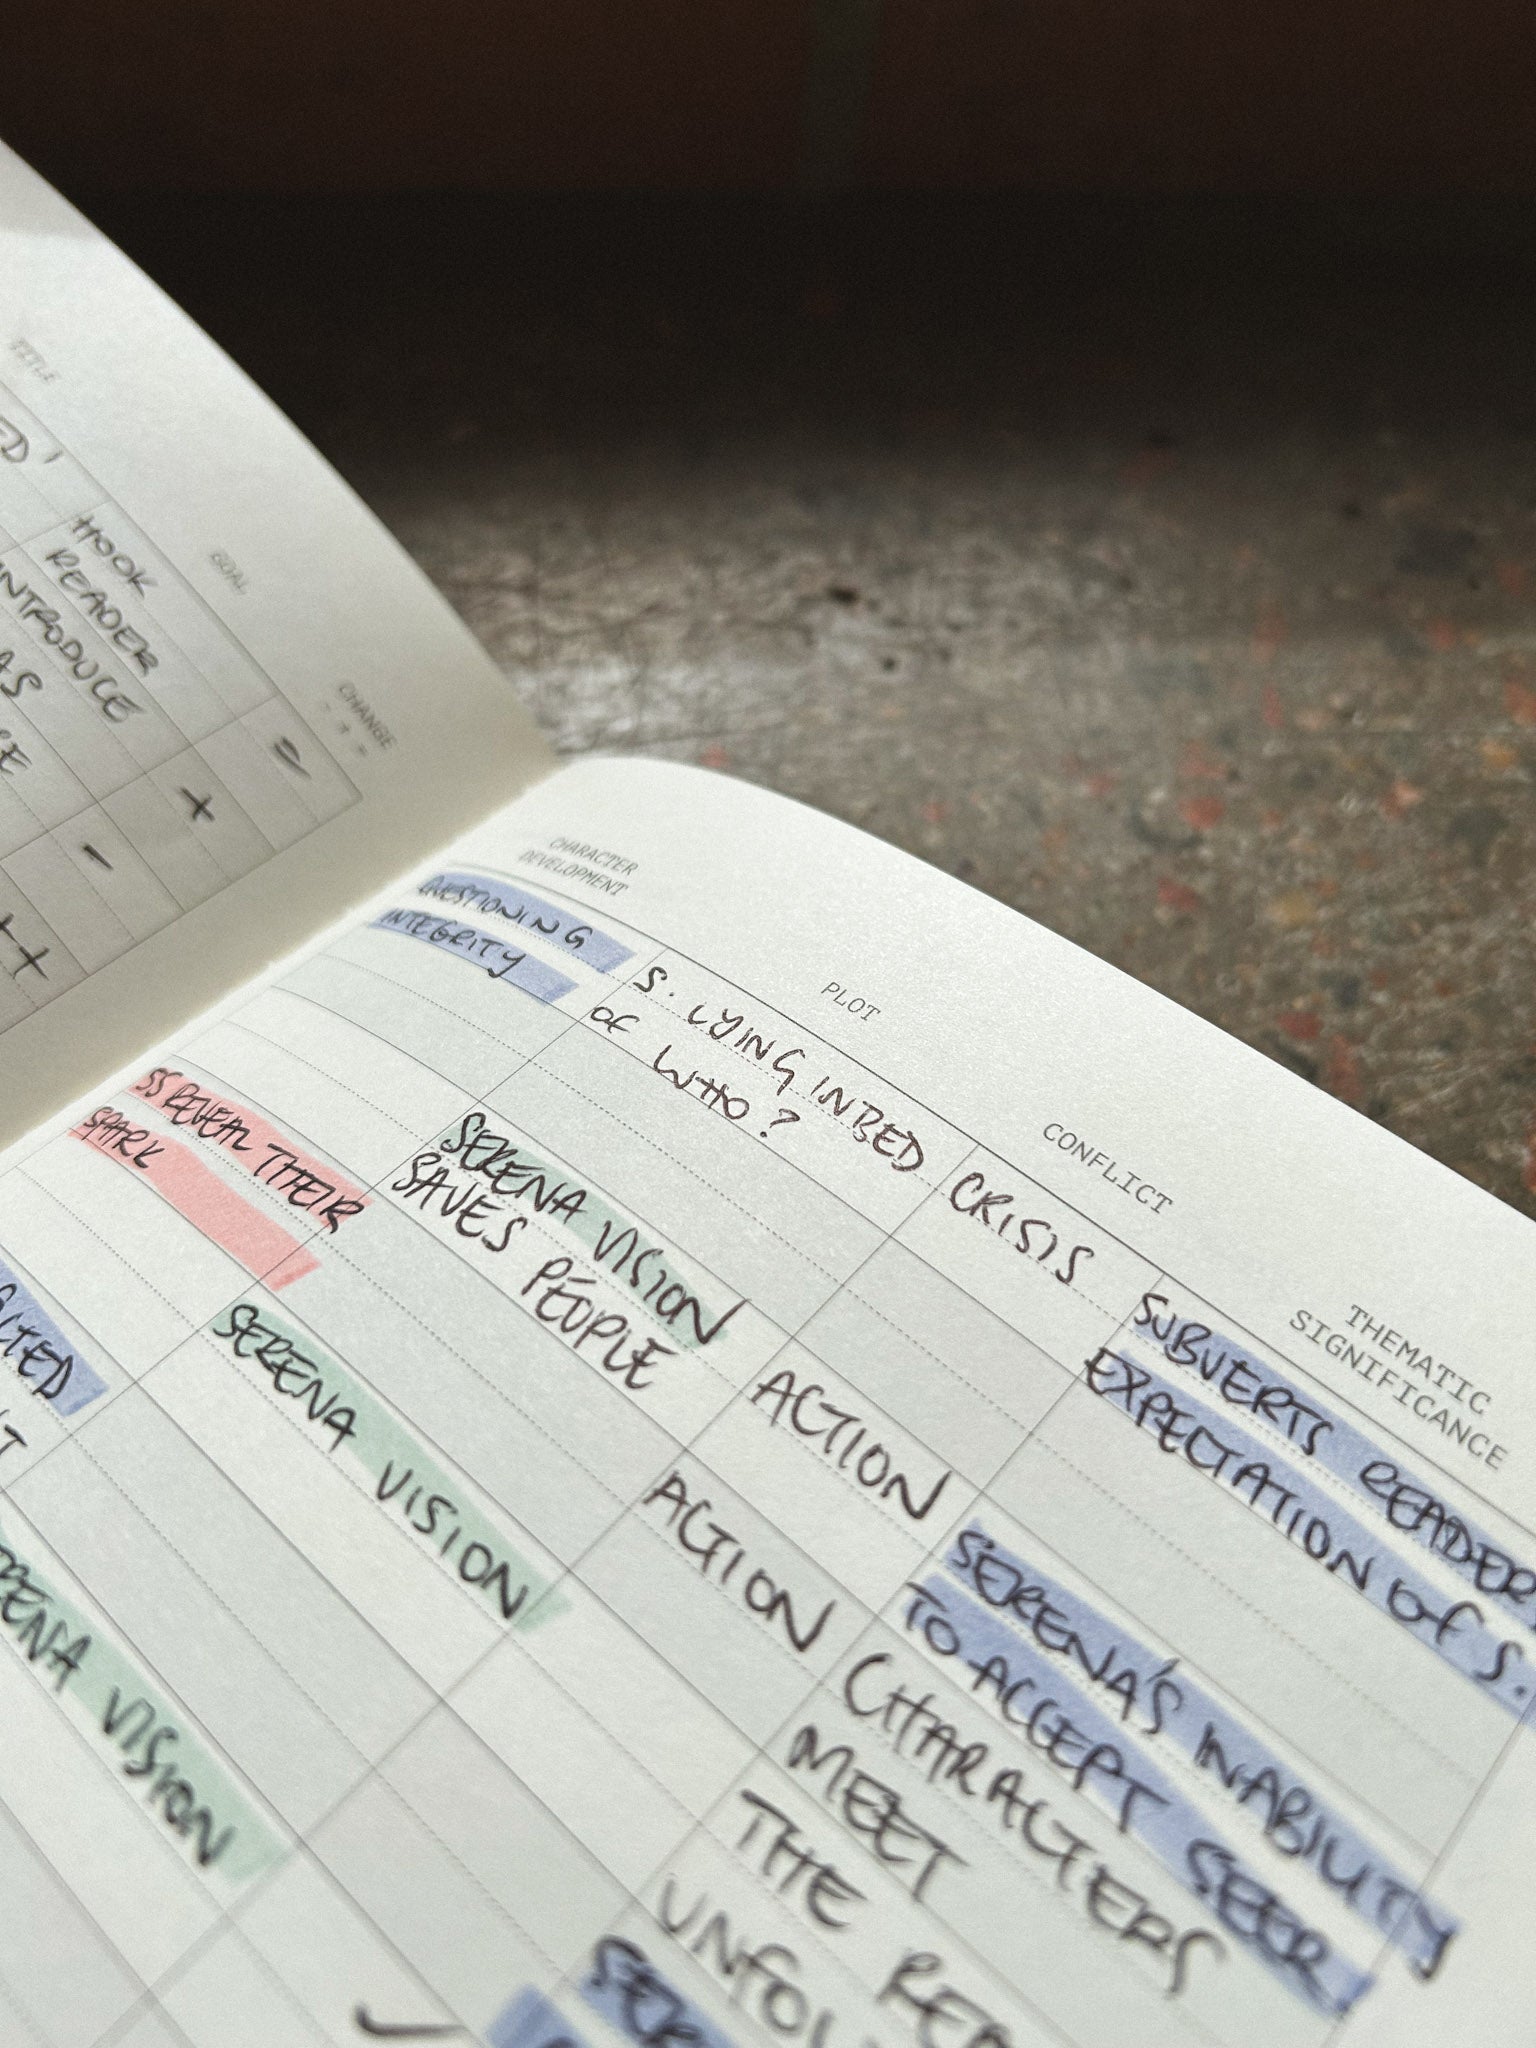 TITLE
GOAL
CHANGE
HOOK
READER
INTRODUCE
CHARACTER
DEVELOPMENT
PLOT
CONFLICT
THEMATIC
SIGNIFICANCE
QUESTIONING
INTEGRITY
S. LYING IN BED
OF WHO?
CRISIS
SUBVERTS READER
EXPECTATION OF S.
SS REVEAL THEIR
SPARK
SERENA VISION
SAVES PEOPLE
ACTION
SERENA'S INABILITY
TO ACCEPT SEER
SERENA VISION
ACTION
CHARACTERS
MEET
THE
VISION